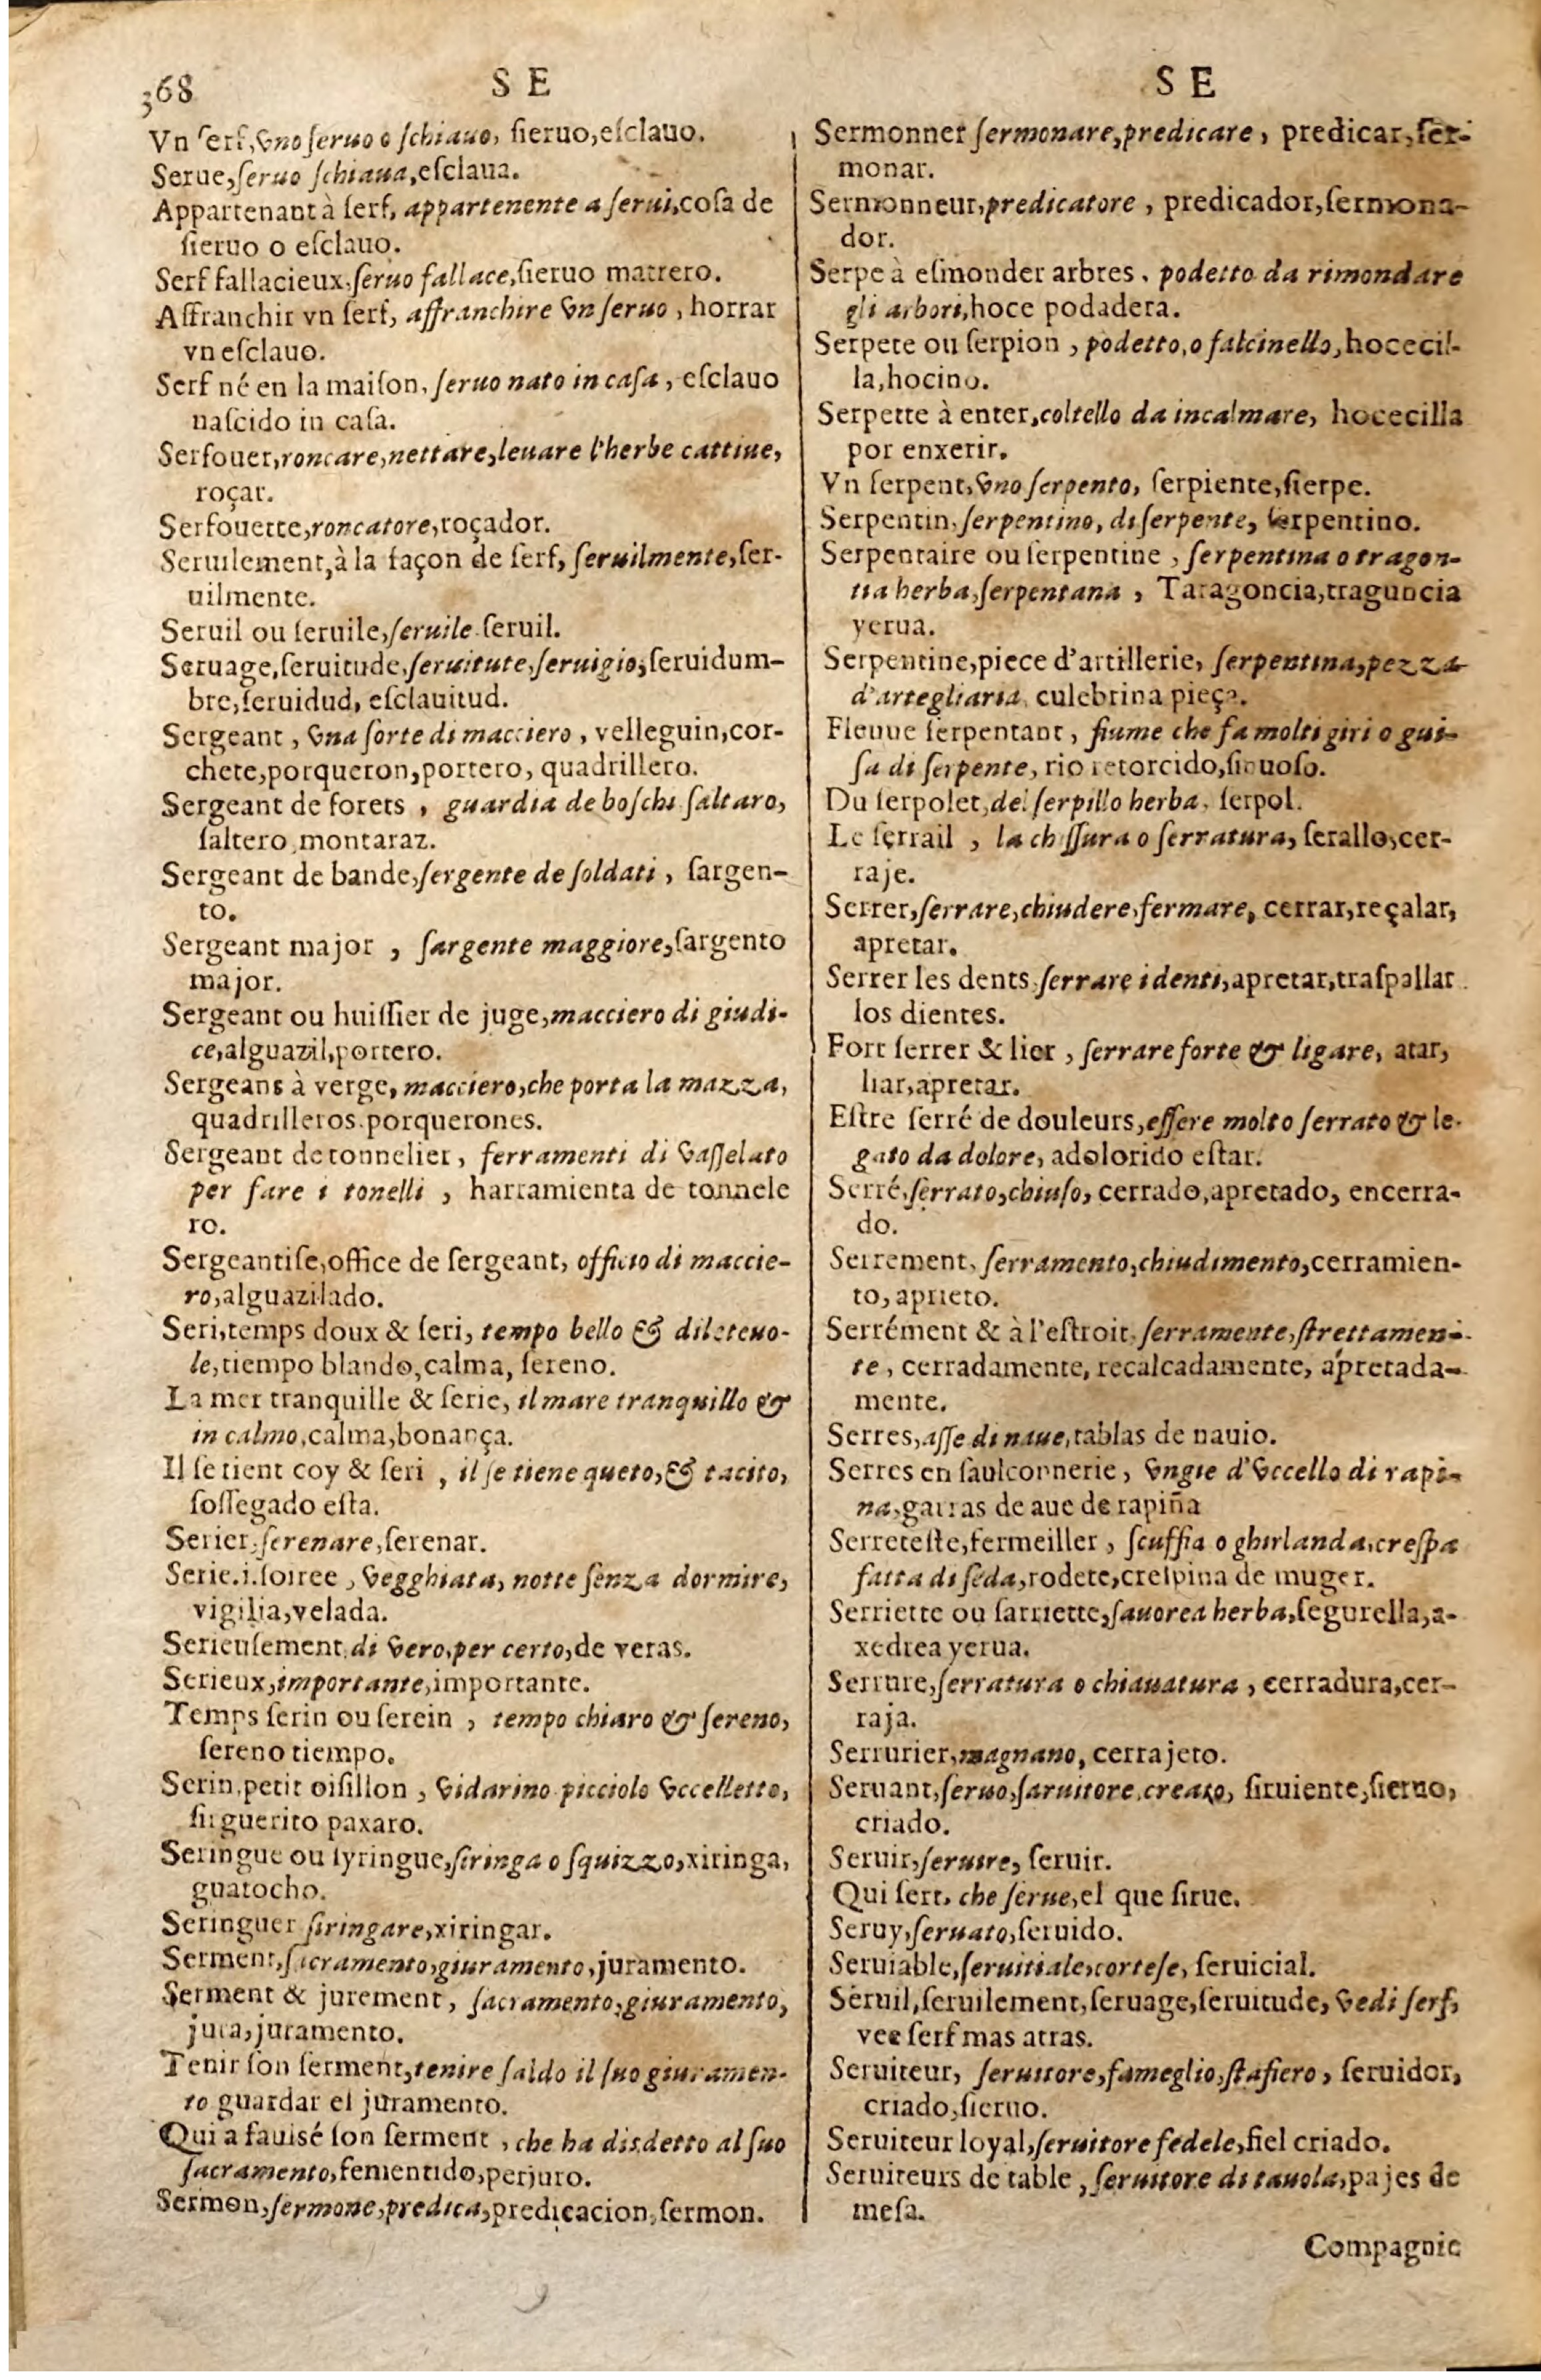 368
S E
S E
Vn ſerf, vno ſeruo o ſchiauo, ſieruo, eſclauo.
Serue, ſeruo ſchiaua, eſclaua.
Appartenant à ſerf, appartenente a ſerui, coſa de
ſieruo o eſclauo.
Serf fallacieux, ſeruo fallace, ſieruo matrero.
Affranchir vn ſerf, affranchire vn ſeruo, horrar
vn eſclauo.
Serf né en la maiſon, ſeruo nato in caſa, eſclauo
naſcido in caſa.
Serfouer, roncare, nettare, leuare l'herbe cattiue,
roçar.
Serfouette, roncatore, roçador.
Seruilement, à la façon de ſerf, ſeruilmente, ſer-
uilmente.
Seruil ou ſeruile, ſeruile ſeruil.
Seruage, ſeruitude, ſeruitute, ſeruigio, ſeruidum-
bre, ſeruidud, eſclauitud.
Sergeant, vna ſorte di macciero, velleguin, cor-
chete, porqueron, portero, quadrillero.
Sergeant de forets, guardia de boſchi ſaltaro,
ſaltero, montaraz.
Sergeant de bande, ſergente de ſoldati, ſargen-
to.
Sergeant major, ſargente maggiore, ſargento
major.
Sergeant ou huiſſier de juge, macciero di giudi-
ce, alguazil, portero.
Sergeans à verge, macciero, che porta la mazza,
quadrilleros. porquerones.
Sergeant de tonnelier, ferramenti di vaſſelato
per fare i tonelli, harramienta de tonnele
ro.
Sergeantiſe, office de ſergeant, officio di maccie-
ro, alguazilado.
Seri, temps doux & ſeri, tempo bello & dileteuo-
le, tiempo blando, calma, ſereno.
La mer tranquille & ſerie, il mare tranquillo &
in calmo, calma, bonança.
Il ſe tient coy & ſeri, il ſe tiene queto, & tacito,
ſoſſegado eſta.
Serier, ſerenare, ſerenar.
Serie. i. ſoiree, vegghiata, notte ſenza dormire,
vigilia, velada.
Serieuſement, di vero, per certo, de veras.
Serieux, importante, importante.
Temps ſerin ou ſerein, tempo chiaro & ſereno,
ſereno tiempo.
Serin, petit oiſillon, vidarino picciolo vccelletto,
ſirguerito paxaro.
Seringue ou ſyringue, ſiringa o ſquizzo, xiringa,
guatocho.
Seringuer ſiringare, xiringar.
Serment, ſacramento, giuramento, juramento.
Serment & jurement, ſacramento, giuramento,
jura, juramento.
Tenir ſon ſerment, tenire ſaldo il ſuo giuramen-
to guardar el juramento.
Qui a fauisé ſon ſerment, che ha disdetto al ſuo
ſacramento, fementido, perjuro.
Sermon, ſermone, predica, predicacion, ſermon.
Sermonner ſermonare, predicare, predicar, ſer-
monar.
Sermonneur, predicatore, predicador, ſermona-
dor.
Serpe à eſmonder arbres. podetto da rimondare
gli arbori, hoce podadera.
Serpete ou ſerpion, podetto, o falcinello, hocecil-
la, hocino.
Serpette à enter, coltello da incalmare, hocecilla
por enxerir.
Vn ſerpent, vno ſerpento, ſerpiente, ſierpe.
Serpentin, ſerpentino, di ſerpente, ſerpentino.
Serpentaire ou ſerpentine, ſerpentina o tragon-
tia herba, ſerpentana, Taragoncia, traguncia
yerua.
Serpentine, piece d'artillerie, ſerpentina, pezza
d'artegliaria, culebrina pieça.
Fleuue ſerpentant, fiume che fa molti giri o gui-
ſa di ſerpente, rio retorcido, ſinuoſo.
Du ſerpolet, del ſerpillo herba, ſerpol.
Le ſerrail, la chiſſura o ſerratura, ſerallo, cer-
raje.
Serrer, ſerrare, chiudere, fermare, cerrar, reçalar,
apretar.
Serrer les dents, ſerrare i denti, apretar, traſpallar
los dientes.
Fort ſerrer & lier, ſerrare forte & ligare, atar,
liar, apretar.
Eſtre ſerré de douleurs, eſſere molto ſerrato & le-
gato da dolore, adolorido eſtar.
Serré, ſerrato, chiuſo, cerrado, apretado, encerra-
do.
Serrement, ſerramento, chiudimento, cerramien-
to, aprieto.
Serrément & à l'eſtroit, ſerramente, ſtrettamen-
te, cerradamente, recalcadamente, apretada-
mente.
Serres, aſſe di naue, tablas de nauio.
Serres en faulconnerie, vngie d'vccello di rapi-
na, garras de aue de rapiña
Serreteſte, fermeiller, ſcuffia o ghirlanda, creſpa
fatta di ſeda, rodete, creſpina de muger.
Serriette ou ſarriette, ſauorea herba, ſegurella, a-
xedrea yerua.
Serrure, ſerratura o chiauatura, cerradura, cer-
raja.
Serrurier, magnano, cerrajero.
Seruant, ſeruo, ſaruitore, creato, ſiruiente, ſieruo,
criado.
Seruir, ſeruire, ſeruir.
Qui ſert, che ſerue, el que ſirue.
Seruy, ſeruato, ſeruido.
Seruiable, ſeruitiale, corteſe, ſeruicial.
Seruil, ſeruilement, ſeruage, ſeruitude, vedi ſerf,
vee ſerf mas atras.
Seruiteur, ſeruitore, fameglio, ſtafiero, ſeruidor,
criado, ſieruo.
Seruiteur loyal, ſeruitore fedele, fiel criado.
Seruiteurs de table, ſeruitore di tauola, pajes de
meſa.
Compagnie